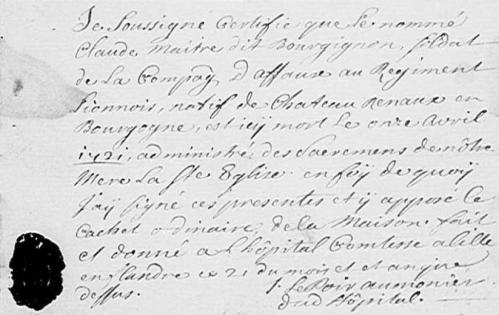 Je Soussigné Certifie que le nommé
Claude Maitre dit Bourgignon, soldat
de La Compag. D affaux au Regiment
Lionnois, natif de Chateau Renaux en
Bourgogne, est icÿ mort le onze Avril
1721, administré des Sacremens de nôtre
Mere La Ste Eglise. en foÿ de quoÿ
J'aÿ Signé ces presentes et ÿ apposé Le
Cachet ordinaire de la Maison. fait
et donné a L'hôpital Comtesse a Lille
en flandre ce 21 du mois et an que
dessus.
J. Le Noir aumonier
dud. Hôpital.